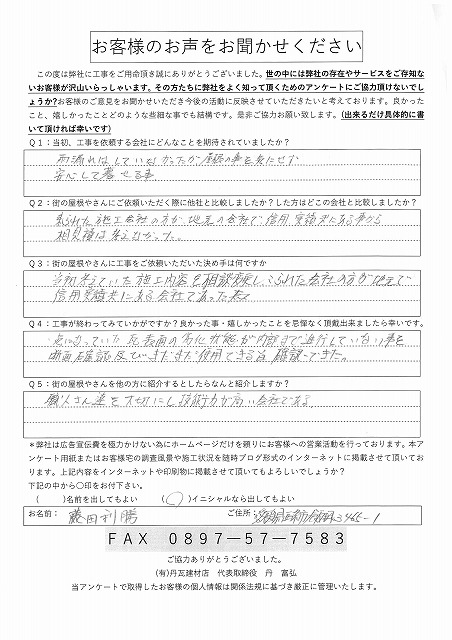 お客様のお声をお聞かせください
この度は弊社に工事をご用命頂き誠にありがとうございました。世の中には弊社の存在やサービスをご存知な
いお客様が沢山いらっしゃいます。その方たちに弊社をよく知って頂くためのアンケートにご協力頂けないでし
ょうか?お客様のご意見をお聞かせいただき今後の活動に反映させていただきたいと考えております。良かった
こと、嬉しかったことどのような些細な事でも結構です。是非ご協力お願い致します。(出来るだけ具体的に書
いて頂ければ幸いです)
Q1:当初、工事を依頼する会社にどんなことを期待されていましたか?
雨漏れはしていなかったが屋根の事を気にせず
安心して暮せる事
Q2:街の屋根やさんにご依頼いただく際に他社と比較しましたか?した方はどこの会社と比較しましたか?
来られた施工会社の方が地元の会社で信用、実績共にある事から
相見積は考えなかった。
Q3:街の屋根やさんに工事をご依頼いただいた決め手は何ですか
当初考えていた施工内容を相談し、こられた会社の方が地元で
信用実績共にある会社で
Q4:工事が終わってみていかがですか?良かった事・嬉しかったことを忌憚なく頂戴出来ましたら幸いです。
気になっていた瓦表面の劣化状態が内部まで進行していない事を
断面確認及びまだまだ使用できる旨確認できた。
Q5:街の屋根やさんを他の方に紹介するとしたらなんと紹介しますか?
職人さん達を大切にし技術力が高い会社である。
*弊社は広告宣伝費を極力かけない為にホームページだけを頼りにお客様への営業活動を行っております。本ア
ンケート用紙またはお客様宅の調査風景や施工状況を随時ブログ形式のインターネットに掲載させて頂いてお
ります。上記内容をインターネットや印刷物に掲載させて頂いてもよろしいでしょうか?
下記の中から〇印をお付下さい。
( )名前を出してもよい (〇)イニシャルなら出してもよい
お名前: 藤田利勝 ご住所: 3465-1
FAX 0897-57-7583
ご協力ありがとうございました。
(有)丹瓦建材店 代表取締役 丹 富弘
当アンケートで取得したお客様の個人情報は関係法規に基づき厳正に管理いたします。